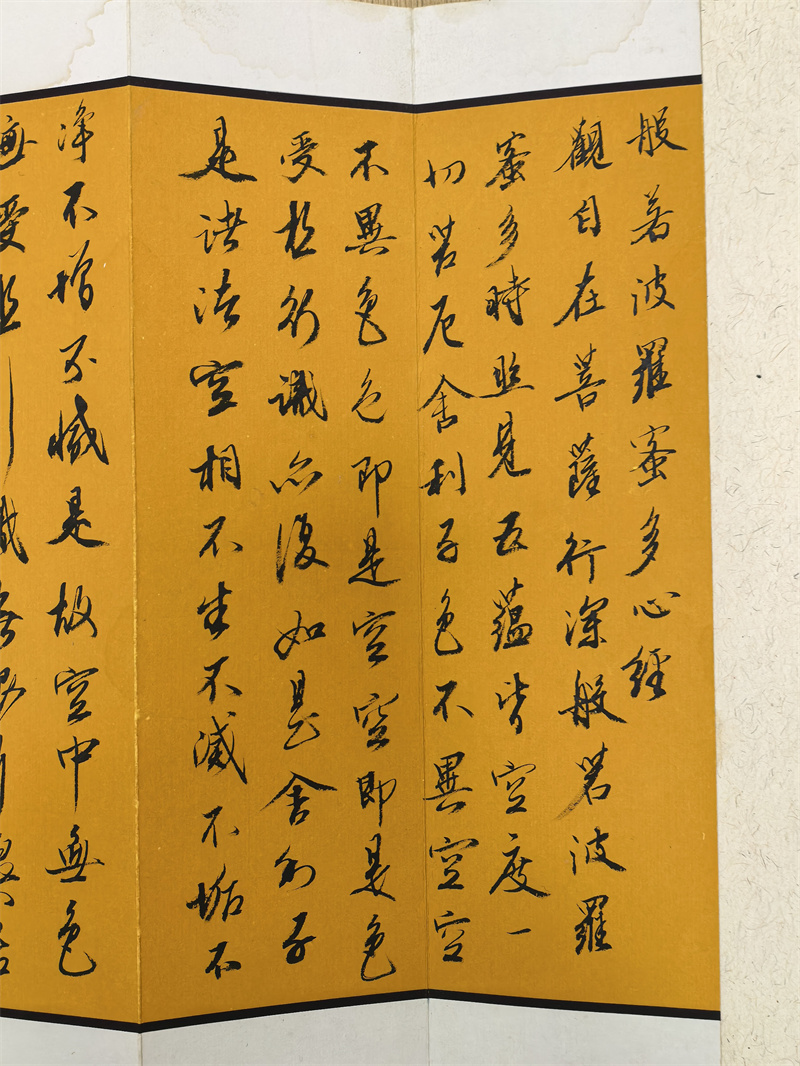 般若波羅蜜多心經
觀自在菩薩行深般若波羅
蜜多時照見五蘊皆空度一
切苦厄舍利子色不異空空
不異色色即是空空即是色
受想行識亦復如是舍利子
是諸法空相不生不滅不垢不
淨不增不減是故空中無色
無受想行識無眼耳鼻舌